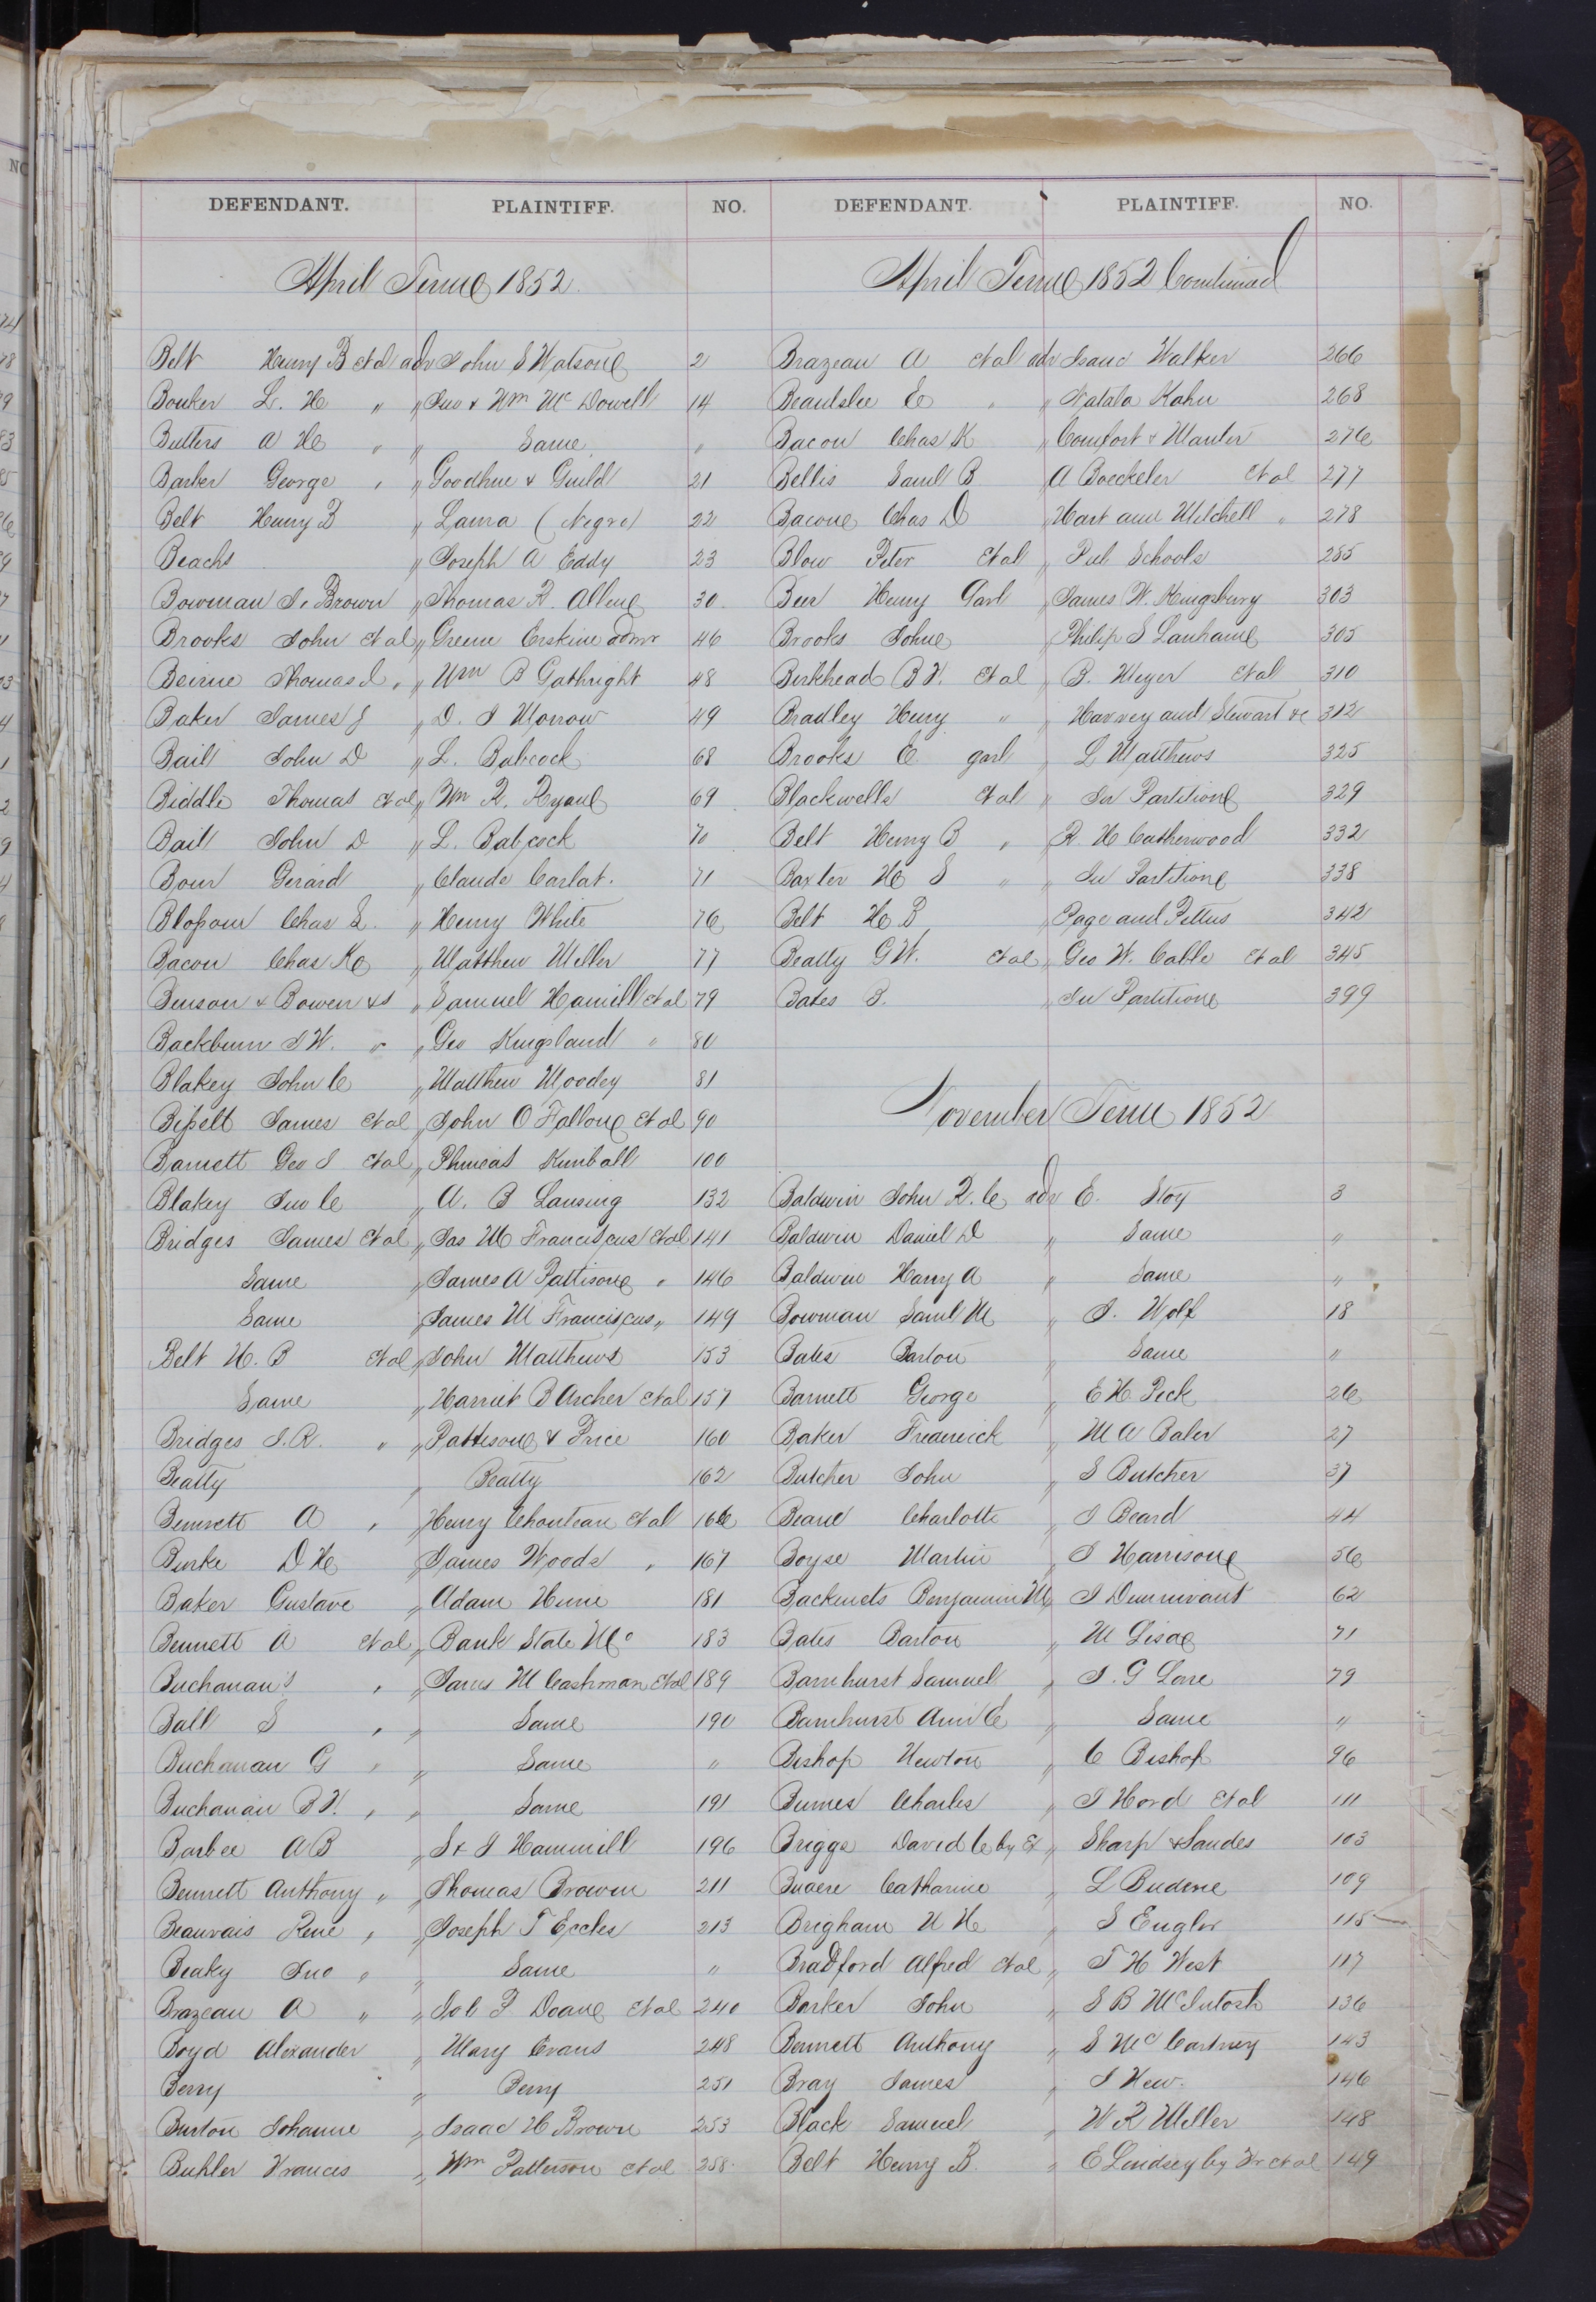 DEFENDANT. PLAINTIFF. NO.
April Term 1852
Belt Henry B et al adv John S Watson 2
Bouker L. H " " Jno & Wm McDowell 14
Butters A H " " Same "
Barker George " " Goodhue & Guild 21
Belt Henry B " Laura (Negro) 22
Beachs " Joseph A Eddy 23
Bowman & Brown " Thomas R. Allen 30
Brooks John et al " Greene Erskine admr 46
Beirne Thomas " Wm B Gathright 48
Baker James J " D. J Morrow 49
Bail John D " L. Babcock 68
Biddle Thomas et al " Wm R. Ryan 69
Bail John D " L. Babcock 70
Bour Gerard " Claude Carlat. 71
Blossom Chas L. " Henry White 76
Bacon Chas K " Matthew Meller 77
Benson & Bowen &s " Samuel Hamill et al 79
Backburn J W. " " Geo Kingsland " 80
Blakey John C " Matthew Moodey 81
Bissell James et al " John O Fallon et al 90
Barnett Geo I et al " Phineas Kimball 100
Blakey Jno C " A. B Lansing 132
Bridges James et al " Jas M Franciscus et al 141
Same " James A Pattison " 146
Same " James M Franciscus " 149
Belt H. B et al " John Matthews 153
Same " Harriet B Archer et al 157
Bridges J. R. " " Pattison & Price 160
Beatty " Beatty 162
Bennett A " " Henry Chouteau et al 166
Burke D H " James Woods " 167
Baker Gustave " Adam Hine 181
Bennett A et al " Bank State Mo 183
Buchanan's " " James M Cashman et al 189
Ball S " " Same 190
Buchanan G " " Same "
Buchanan B F. " " Same 191
Barbee A B " S & J Hammill 196
Bennett Anthony " " Thomas Brown 211
Beauvais Rene " " Joseph T Eccles 213
Beaky Jno " " Same "
Brazeau A " " Job P Doane et al 240
Boyd Alexander " Mary Evans 248
Berry " Berry 251
Burton Johanne " Isaac H Brown 253
Buhler Francis " Wm Patterson et al 258
DEFENDANT. PLAINTIFF. NO.
April Term 1852 Continued
Brazeau A et al adv Isaac Walker 266
Beardslee E " " Natala Kahn 268
Bacon Chas K " Comfort & Manter 276
Bellis Saml B A Boeckeler et al 277
Bacon Chas D " Hart and Mitchell " 278
Blow Peter et al " Pub Schools 285
Beer Henry Garl " James W. Kingsbury 303
Brooks John " Philip S Lanham 305
Birkhead B F. et al " B. Meyer et al 310
Bradley Henry " " Harvey and Stewart &c 312
Brooks E garl " L Matthews 325
Blackwells et al " In Partition 329
Belt Henry B " R. H Catherwood 332
Baxter H S " " In Partition 338
Belt H B " Page and Pettus 342
Beatty G W. et al " Geo W. Cable et al 345
Bates B. " In Partition 399
November Term 1852
Baldwin John R. C adv E. Stoy 3
Baldwin Daniel D " Same "
Baldwin Harry A " Same "
Bowman Saml M " J. Wolf 18
Bates Barton " Same "
Barnett George " E H Peck 26
Baker Frederick " M A Baker 27
Butcher John " S Butcher 37
Beard Charlotte " J Beard 44
Boyse Martin " J Harrison 56
Backnets Benjamin M " J Dunnivant 62
Bates Barton " M Lisa 71
Barnhurst Samuel " J. G Lore 79
Barnhurst Ann C " Same "
Bishop Newton " C Bishop 96
Burnes Charles " J Hord et al 111
Briggs David C by Ex " Sharp & Sandes 103
Catharine " L 109
Brigham H H " S Engler 115
Bradford Alfred et al " T H West 117
Barker John " S B McIntosh 136
Bennett Anthony " S McCartney 143
Bray James " J Hew. 146
Black Samuel " W R Meller 148
Belt Henry B. " E Lindsey by Fr et al 149